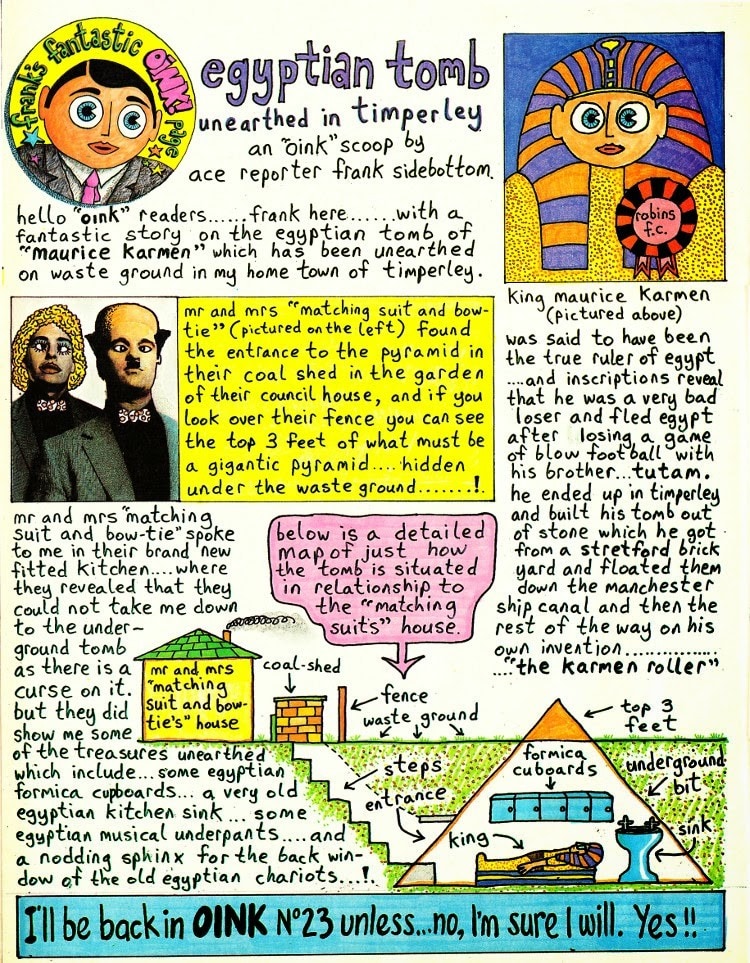 frank's fantastic OINK! page
egyptian tomb
unearthed in timperley
an "oink" scoop by
ace reporter frank sidebottom.
hello "oink" readers......frank here......with a
fantastic story on the egyptian tomb of
"maurice karmen" which has been unearthed
on waste ground in my home town of timperley.
robins
f.c.
mr and mrs "matching suit and bow-
tie" (pictured on the left) found
the entrance to the pyramid in
their coal shed in the garden
of their council house, and if you
look over their fence you can see
the top 3 feet of what must be
a gigantic pyramid.... hidden
under the waste ground........!.
King maurice Karmen
(pictured above)
was said to have been
the true ruler of egypt
....and inscriptions reveal
that he was a very bad
loser and fled egypt
after losing a game
of blow football with
his brother...tutam.
he ended up in timperley
and built his tomb out
of stone which he got
from a stretford brick
yard and floated them
down the manchester
ship canal and then the
rest of the way on his
own invention...............
...."the karmen roller"
mr and mrs "matching
suit and bow-tie" spoke
to me in their brand new
fitted kitchen....where
they revealed that they
could not take me down
to the under-
ground tomb
as there is a
curse on it.
but they did
show me some
of the treasures unearthed
which include... some egyptian
formica cupboards... a very old
egyptian kitchen sink ... some
egyptian musical underpants....and
a nodding sphinx for the back win-
dow of the old egyptian chariots...!.
below is a detailed
map of just how
the tomb is situated
in relationship to
the "matching
suit's" house.
mr and mrs
"matching
suit and bow-
tie's" house
coal-shed
fence
waste ground
top 3
feet
steps
entrance
formica
cuboards
underground
bit
king
sink
I'll be back in OINK Nº23 unless...no, I'm sure I will. Yes!!